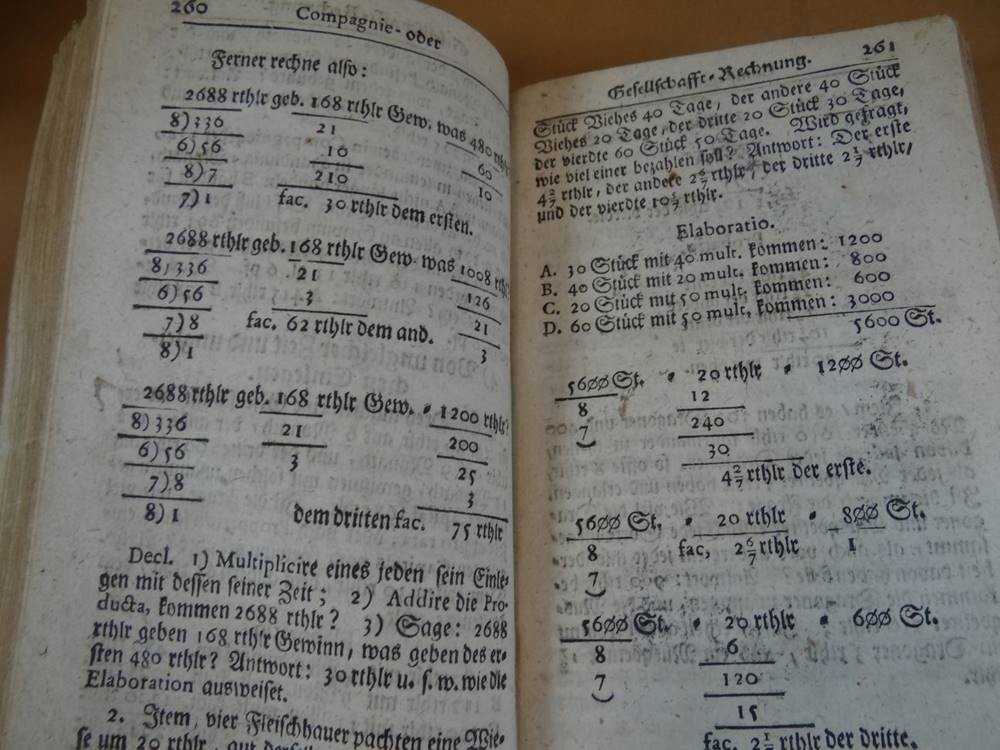 260 Compagnie- oder
Ferner rechne also:
2688 rthlr geb. 168 rthlr Gew. was 480 rthlr
8)336 21 60
6)56 10 10
8)7 210
7)1 fac. 30 rthlr dem ersten.
2688 rthlr geb. 168 rthlr Gew. was 1008 rthl
8)336 21 126
6)56 3 21
7)8 fac. 62 rthlr dem and. 3
8)1
2688 rthlr geb. 168 rthlr Gew. • 1200 rthlr?
8)336 21 200
6)56 3 25
7)8 3
8)1 dem dritten fac. 75 rthlr
Decl. 1) Multiplicire eines jeden sein Einle-
gen mit dessen seiner Zeit; 2) Addire die Pro-
ducta, kommen 2688 rthlr? 3) Sage: 2688
rthlr geben 168 rth'r Gewinn, was geben des er-
sten 480 rthlr? Antwort: 30 rthlr u. s. w. wie die
Elaboration ausweiset.
2. Item, vier Fleischhauer pachten eine Wie-
se um 20 rthlr,
Gesellschafft-Rechnung. 261
Stück Viehes 40 Tage, der andere 40 Stück
Viehes 20 Tage, der dritte 20 Stück 30 Tage,
der vierdte 60 Stück 50 Tage. Wird gefragt,
wie viel einer bezahlen soll? Antwort: Der erste
4 2/7 rthlr, der andere 2 6/7 rthlr, der dritte 2 1/7 rthlr,
und der vierdte 10 5/7 rthlr.
Elaboratio.
A. 30 Stück mit 40 mult. kommen: 1200
B. 40 Stück mit 20 mult. kommen: 800
C. 20 Stück mit 50 mult. kommen: 600
D. 60 Stück mit 50 mult. kommen: 3000
5600 St.
5600 St. • 20 rthlr • 1200 St.
8 12
7 240
30
4 2/7 rthlr der erste.
5600 St. • 20 rthlr • 800 St.
8 fac, 2 6/7 rthlr 1
7
5600 St. • 20 rthlr • 600 St.
8 6
7 120
15
fac. 2 1/7 rthlr der dritte.